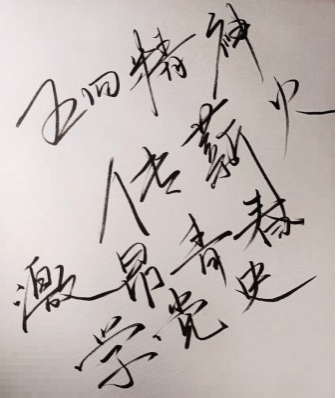 五四精神
传薪火
激昂青春
学党史